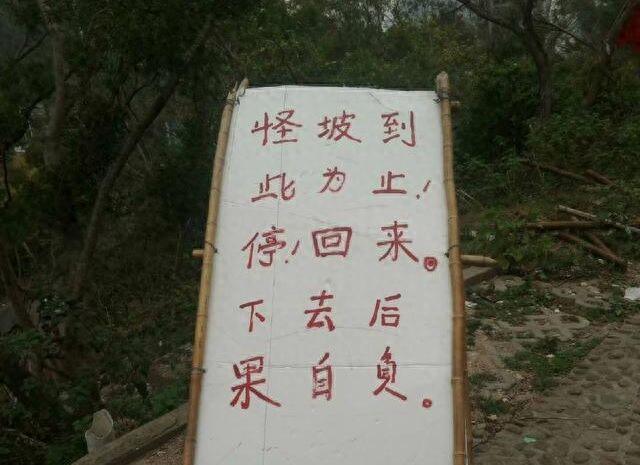 怪坡到
此为止!
停!回来。
下去后
果自负。